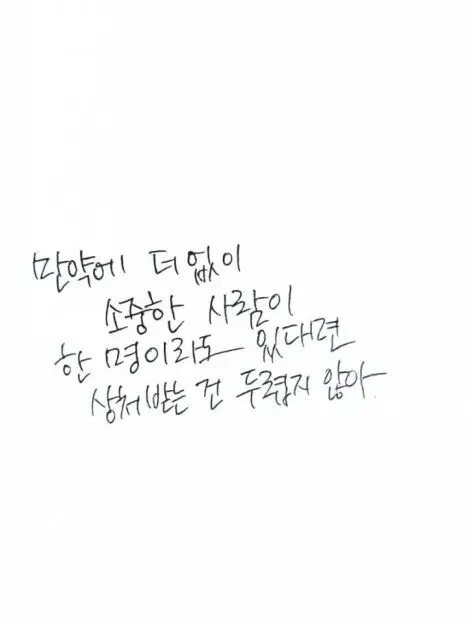 만약에 더없이
소중한 사람이
한 명이라도 있다면
상처받는 건 두렵지 않아